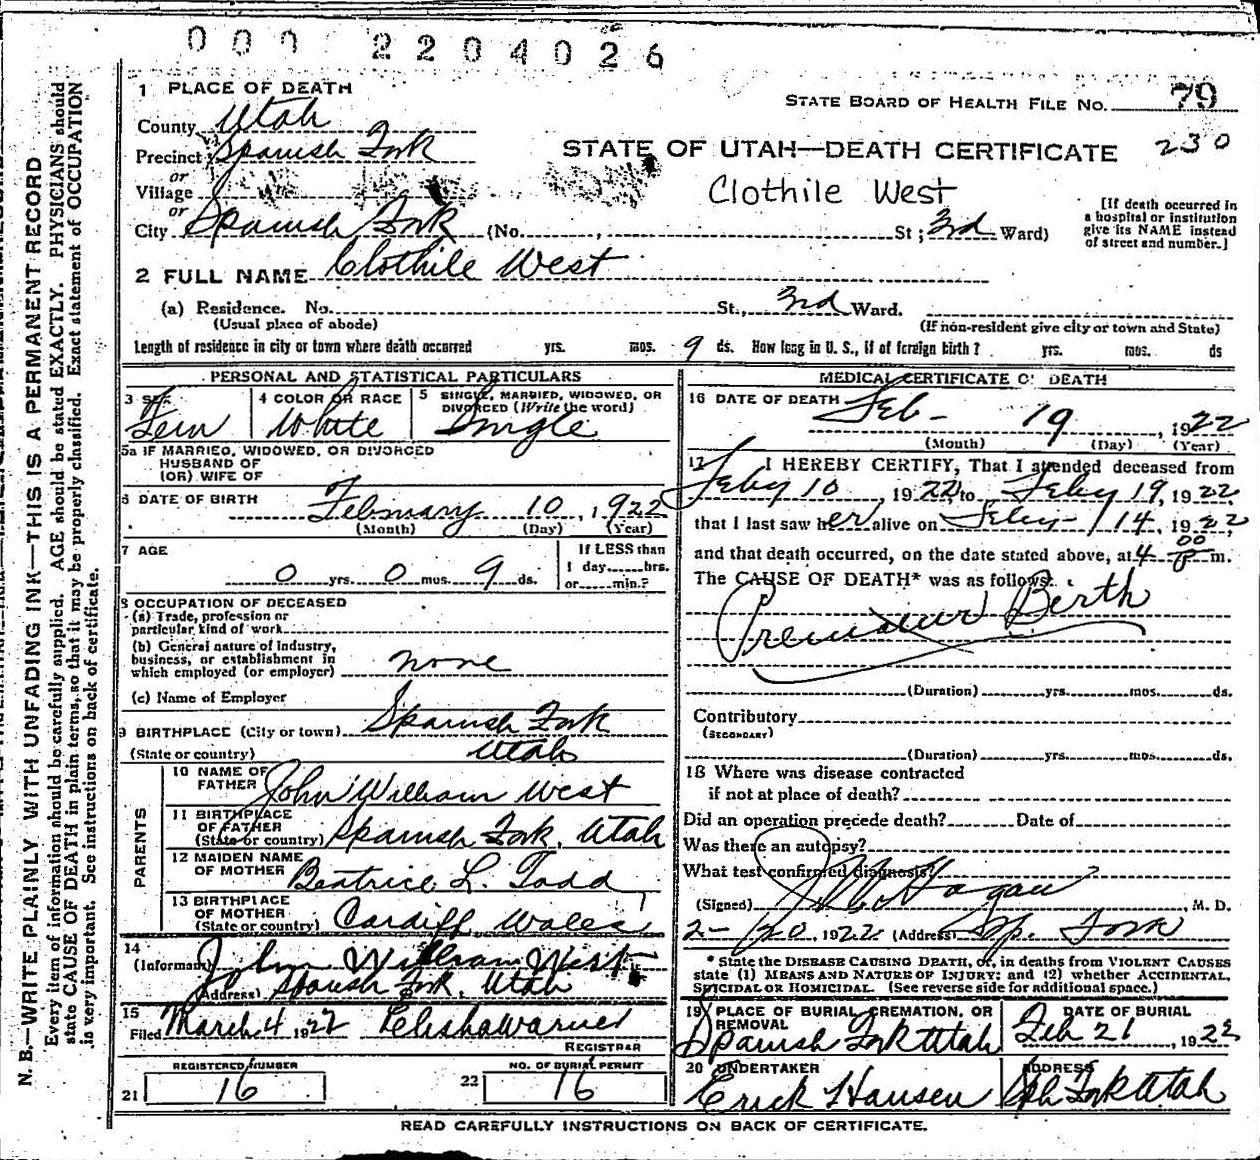 000 2204026
1 PLACE OF DEATH
STATE BOARD OF HEALTH FILE No. 79
County Utah
230
Precinct Spanish Fork
STATE OF UTAH—DEATH CERTIFICATE
or
Village
Clothile West
or
City Spanish Fork (No. , St ; 3rd Ward)
[If death occurred in
a hospital or institution
give its NAME instead
of street and number.]
2 FULL NAME Clothile West
(a) Residence. No. St., 3rd Ward.
(Usual place of abode)
(If non-resident give city or town and State)
Length of residence in city or town where death occurred yrs. mos. 9 ds. How long in U. S., if of foreign birth? yrs. mos. ds
PERSONAL AND STATISTICAL PARTICULARS
3 SEX
Fem
4 COLOR OR RACE
White
5 SINGLE, MARRIED, WIDOWED, OR
DIVORCED (Write the word)
Single
5a IF MARRIED, WIDOWED, OR DIVORCED
HUSBAND OF
(OR) WIFE OF
6 DATE OF BIRTH February 10, 1922
(Month) (Day) (Year)
7 AGE
0 yrs. 0 mos. 9 ds.
If LESS than
1 day......hrs.
or......min.?
8 OCCUPATION OF DECEASED
(a) Trade, profession or
particular kind of work
(b) General nature of industry,
business, or establishment in
which employed (or employer) none
(c) Name of Employer
9 BIRTHPLACE (City or town) Spanish Fork
(State or country) Utah
PARENTS
10 NAME OF
FATHER John William West
11 BIRTHPLACE
OF FATHER
(State or country) Spanish Fork, Utah
12 MAIDEN NAME
OF MOTHER Beatrice L. Todd
13 BIRTHPLACE
OF MOTHER
(State or country) Cardiff, Wales
14
(Informant) John William West
(Address) Spanish Fork, Utah
15
Filed March 4 1922 Elisha Warner
REGISTRAR
REGISTERED NUMBER
21 16
NO. OF BURIAL PERMIT
22 16
MEDICAL CERTIFICATE OF DEATH
16 DATE OF DEATH Feb- 19, 1922
(Month) (Day) (Year)
17 I HEREBY CERTIFY, That I attended deceased from
Feby 10, 1922 to Feby 19, 1922
that I last saw her alive on Feby- 14, 1922,
and that death occurred, on the date stated above, at 4 00 P m.
The CAUSE OF DEATH* was as follows:
Premature Berth
(Duration) yrs. mos. ds.
Contributory
(SECONDARY)
(Duration) yrs. mos. ds.
18 Where was disease contracted
if not at place of death?
Did an operation precede death? Date of
Was there an autopsy?
What test confirmed diagnosis?
(Signed) Hagan, M. D.
2-20, 1922 (Address) Sp. Fork
* State the DISEASE CAUSING DEATH, or, in deaths from VIOLENT CAUSES
state (1) MEANS AND NATURE OF INJURY; and (2) whether ACCIDENTAL,
SUICIDAL OR HOMICIDAL. (See reverse side for additional space.)
19 PLACE OF BURIAL, CREMATION, OR
REMOVAL
Spanish Fork Utah
DATE OF BURIAL
Feb 21, 1922
20 UNDERTAKER
Erick Hansen
ADDRESS
Sph Fork Utah
READ CAREFULLY INSTRUCTIONS ON BACK OF CERTIFICATE.
N. B.—WRITE PLAINLY WITH UNFADING INK—THIS IS A PERMANENT RECORD
Every item of information should be carefully supplied. AGE should be stated EXACTLY. PHYSICIANS should
state CAUSE OF DEATH in plain terms, so that it may be properly classified. Exact statement of OCCUPATION
is very important. See instructions on back of certificate.